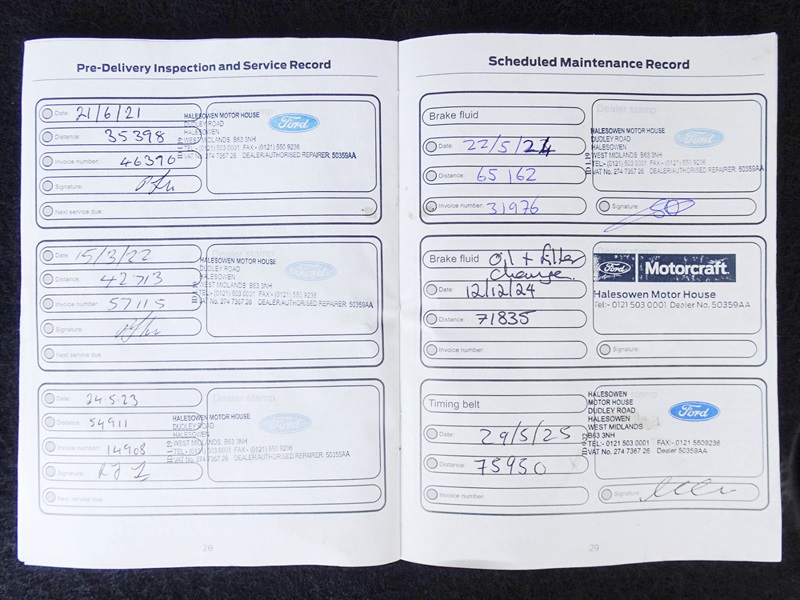 Pre-Delivery Inspection and Service Record
Date: 21/6/21
Distance: 35398
Invoice number: 46390
Signature:
Next service due:
HALESOWEN MOTOR HOUSE
DUDLEY ROAD
HALESOWEN
WEST MIDLANDS B63 3NH
TEL:- (0121) 503 0001 FAX:- (0121) 550 9236
VAT No. 274 7367 26 DEALER/AUTHORISED REPAIRER: 50359AA
Ford
Date: 15/3/22
Distance: 42713
Invoice number: 57115
Signature:
Next service due:
HALESOWEN MOTOR HOUSE
DUDLEY ROAD
HALESOWEN
WEST MIDLANDS B63 3NH
TEL:- (0121) 503 0001 FAX:- (0121) 550 9236
VAT No. 274 7367 26 DEALER/AUTHORISED REPAIRER: 50359AA
Ford
Date: 24.5.23
Distance: 54911
Invoice number: 14908
Signature:
Next service due:
Dealer stamp
HALESOWEN MOTOR HOUSE
DUDLEY ROAD
HALESOWEN
WEST MIDLANDS B63 3NH
TEL:- (0121) 503 0001 FAX:- (0121) 550 9236
VAT No. 274 7367 26 DEALER/AUTHORISED REPAIRER: 50359AA
Ford
28
Scheduled Maintenance Record
Brake fluid
Date: 22/5/24
Distance: 65162
Invoice number: 31976
Dealer stamp
HALESOWEN MOTOR HOUSE
DUDLEY ROAD
HALESOWEN
WEST MIDLANDS B63 3NH
TEL:- (0121) 503 0001 FAX:- (0121) 550 9236
VAT No. 274 7367 26 DEALER/AUTHORISED REPAIRER: 50359AA
Ford
Signature:
Brake fluid Oil + filter
change
Date: 12/12/24
Distance: 71835
Invoice number:
Ford Motorcraft
Halesowen Motor House
Tel:- 0121 503 0001 Dealer No. 50359AA
Signature:
Timing belt
Date: 29/5/25
Distance: 75950
Invoice number:
HALESOWEN
MOTOR HOUSE
DUDLEY ROAD
HALESOWEN
WEST MIDLANDS
B63 3NH
TEL:- 0121 503 0001 FAX:- 0121 5509236
VAT No. 274 7367 26 Dealer 50359AA
Ford
Signature:
29